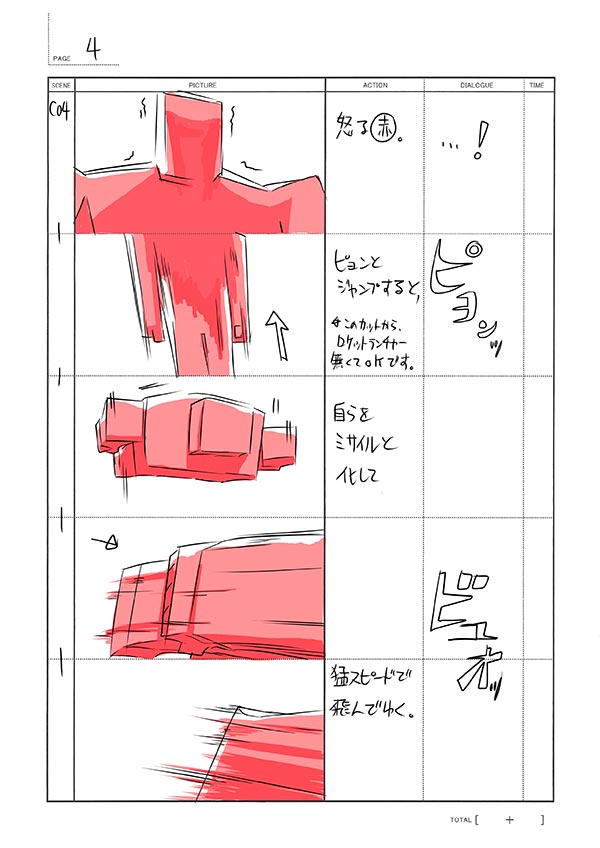 PAGE 4
SCENE PICTURE ACTION DIALOGUE TIME
C04
怒る赤。
…!
ピョンと
ジャンプすると、
※このカットから、
ロケットランチャー
無くてOKです。
ピョンッ
自らを
ミサイルと
化して
ビュオッ
猛スピードで
飛んでゆく。
TOTAL [ + ]